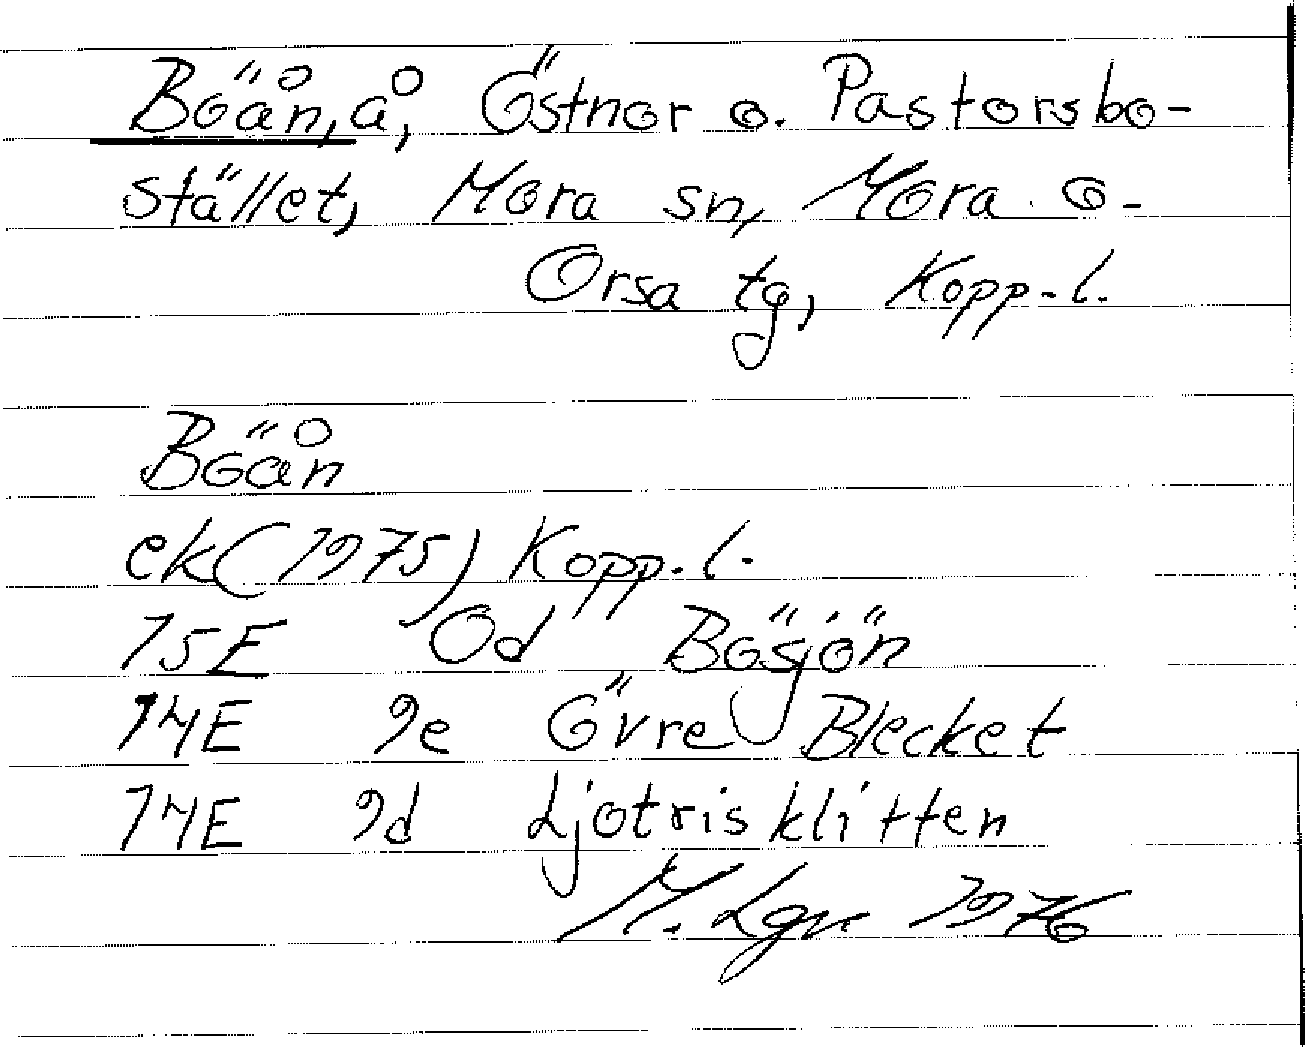 Böån, å, Östnor o. Pastorsbo-
stället, Mora sn, Mora o.
Orsa tg, Kopp.l.
Böån
ek (1975) Kopp.l.
15E 0d Bösjön
14E 9e Övre Blecket
14E 9d Ljotrisklitten
M. Lgn 1976